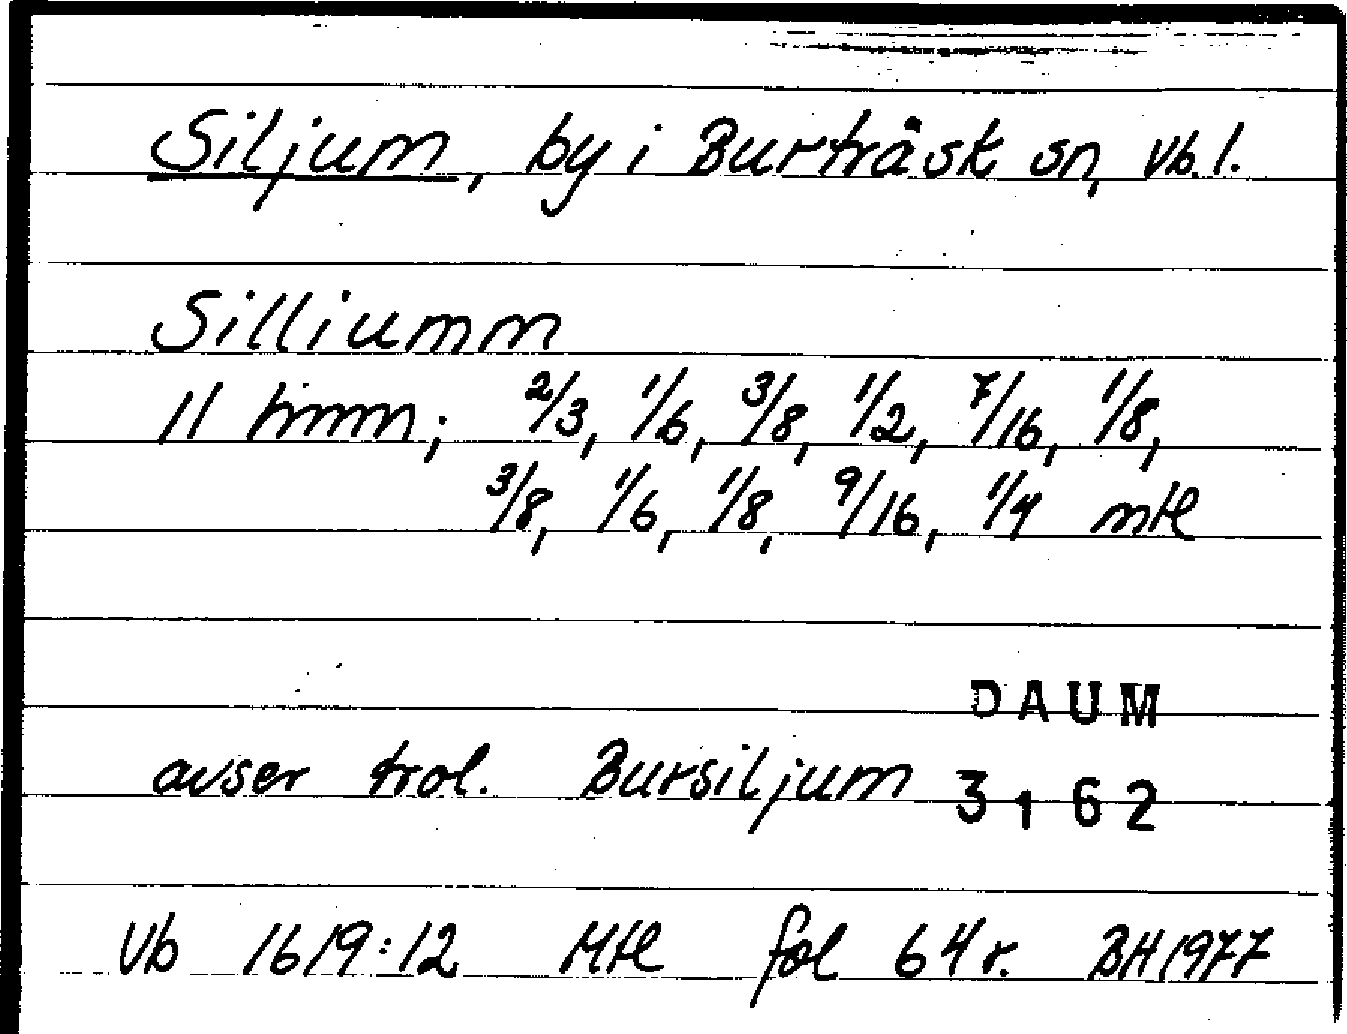 Siljum, by i Burträsk sn, Vb. l.
Silliumm
11 hmn; 2/3, 1/6, 3/8, 1/2, 7/16, 1/8,
3/8, 1/6, 1/8, 9/16, 1/4 mtl
DAUM
avser trol. Bursiljum 3162
Vb 1619:12 Mtl fol 64r. BH 1977